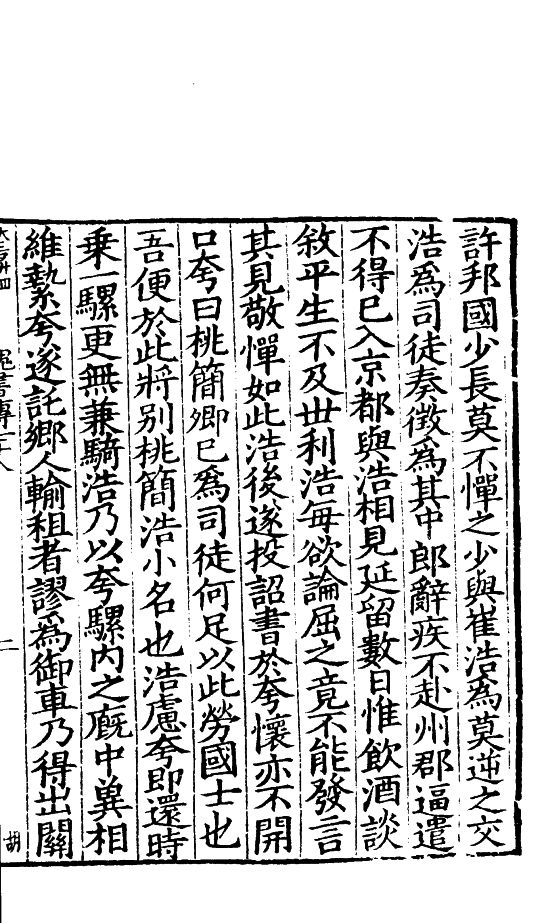 許邦國少長莫不憚之少與崔浩爲莫逆之交
浩爲司徒奏徵爲其中郎辭疾不赴州郡逼遣
不得已入京都與浩相見延留數日惟飲酒談
敘平生不及世利浩每欲論屈之竟不能發言
其見敬憚如此浩後遂投詔書於夸懷亦不開
口夸曰桃簡卿已爲司徒何足以此勞國士也
吾便於此將別桃簡浩小名也浩慮夸即還時
乗一騾更無兼騎浩乃以夸騾内之廐中兾相
維縶夸遂託鄉人輸租者謬爲御車乃得出關
魏書傳七十八
二
胡